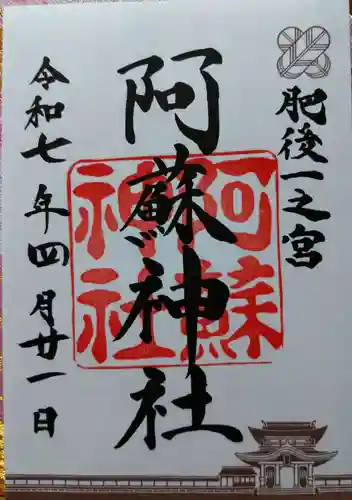 肥後一之宮
阿蘇神社
阿蘇神社
令和七年四月廿一日